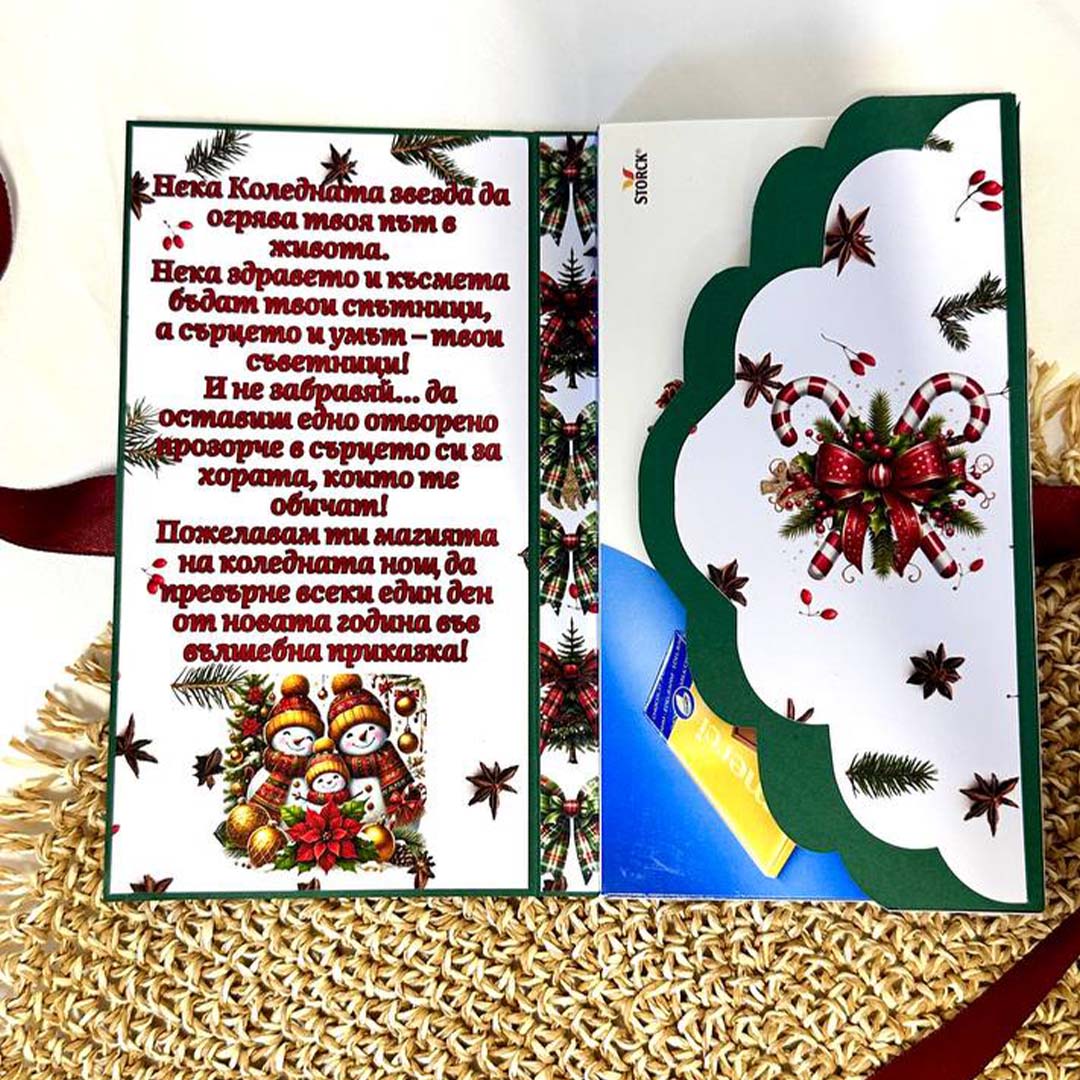 Нека Коледната звезда да
огрява твоя път в
живота.
Нека здравето и късмета
бъдат твои спътници,
а сърцето и умът – твои
съветници!
И не забравяй... да
оставиш едно отворено
прозорче в сърцето си за
хората, които те
обичат!
Пожелавам ти магията
на коледната нощ да
превърне всеки един ден
от новата година във
вълшебна приказка!
STORCK®
merci